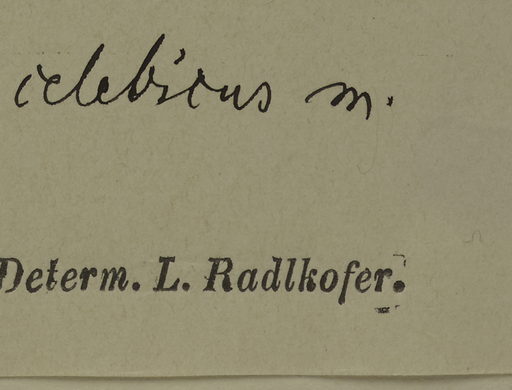 celebicus m.
Determ. L. Radlkofer.